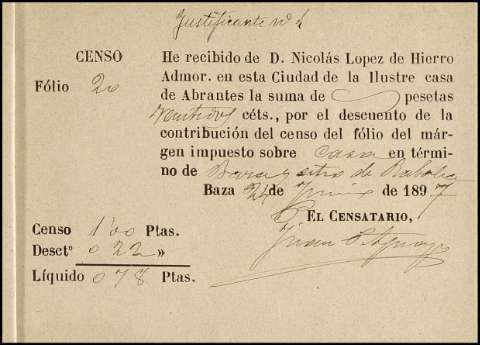 Justificante nº
CENSO
Fólio 20
He recibido de D. Nicolás Lopez de Hierro
Admor. en esta Ciudad de la Ilustre casa
de Abrantes la suma de pesetas
veintidos céts., por el descuento de la
contribución del censo del fólio del már-
gen impuesto sobre casa en térmi-
no de Baza y sitio de Rabalia
Baza 24 de Junio de 1897
EL CENSATARIO,
Juan
Censo 1'00 Ptas.
Desctº 0 22 »
Líquido 0 78 Ptas.